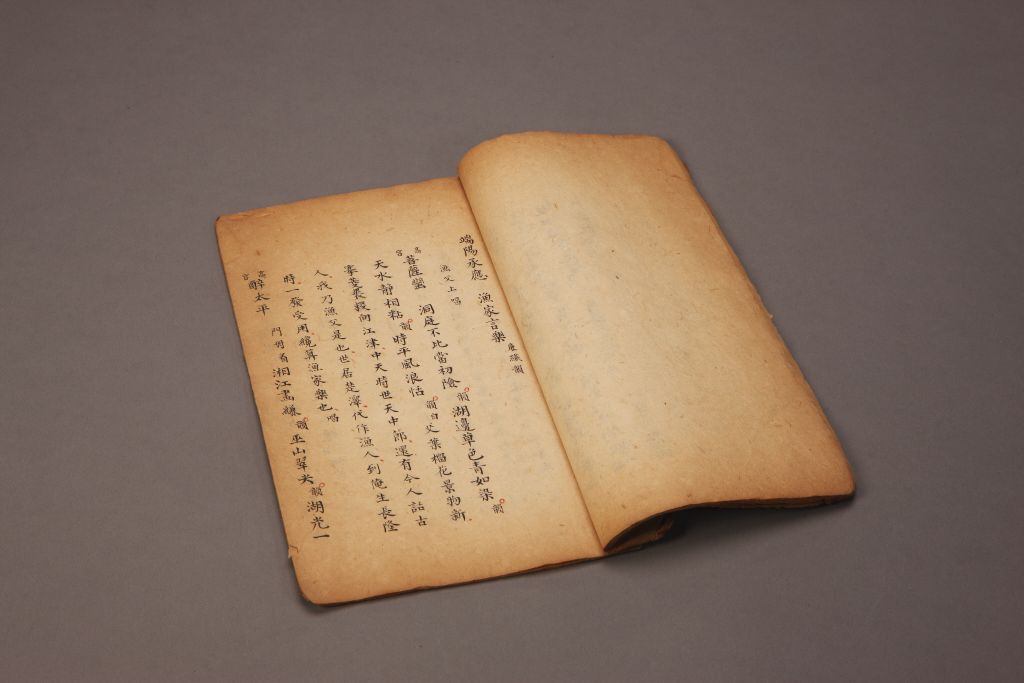 端陽承應 漁家言樂 廉纖韻
漁父上唱
高宮 菩薩蠻 洞庭不比當初險韻湖邊草色青如染韻
天水靜相粘韻時平風浪恬韻白艾葉榴花景物新
向江津中天時世天中節還有今人話古
人我乃漁父是也世居楚澤代作漁人到俺生長隆
時一發受用纔算漁家樂也唱
高宮 醉太平 湘江畫縑韻巫山翠尖韻湖光一